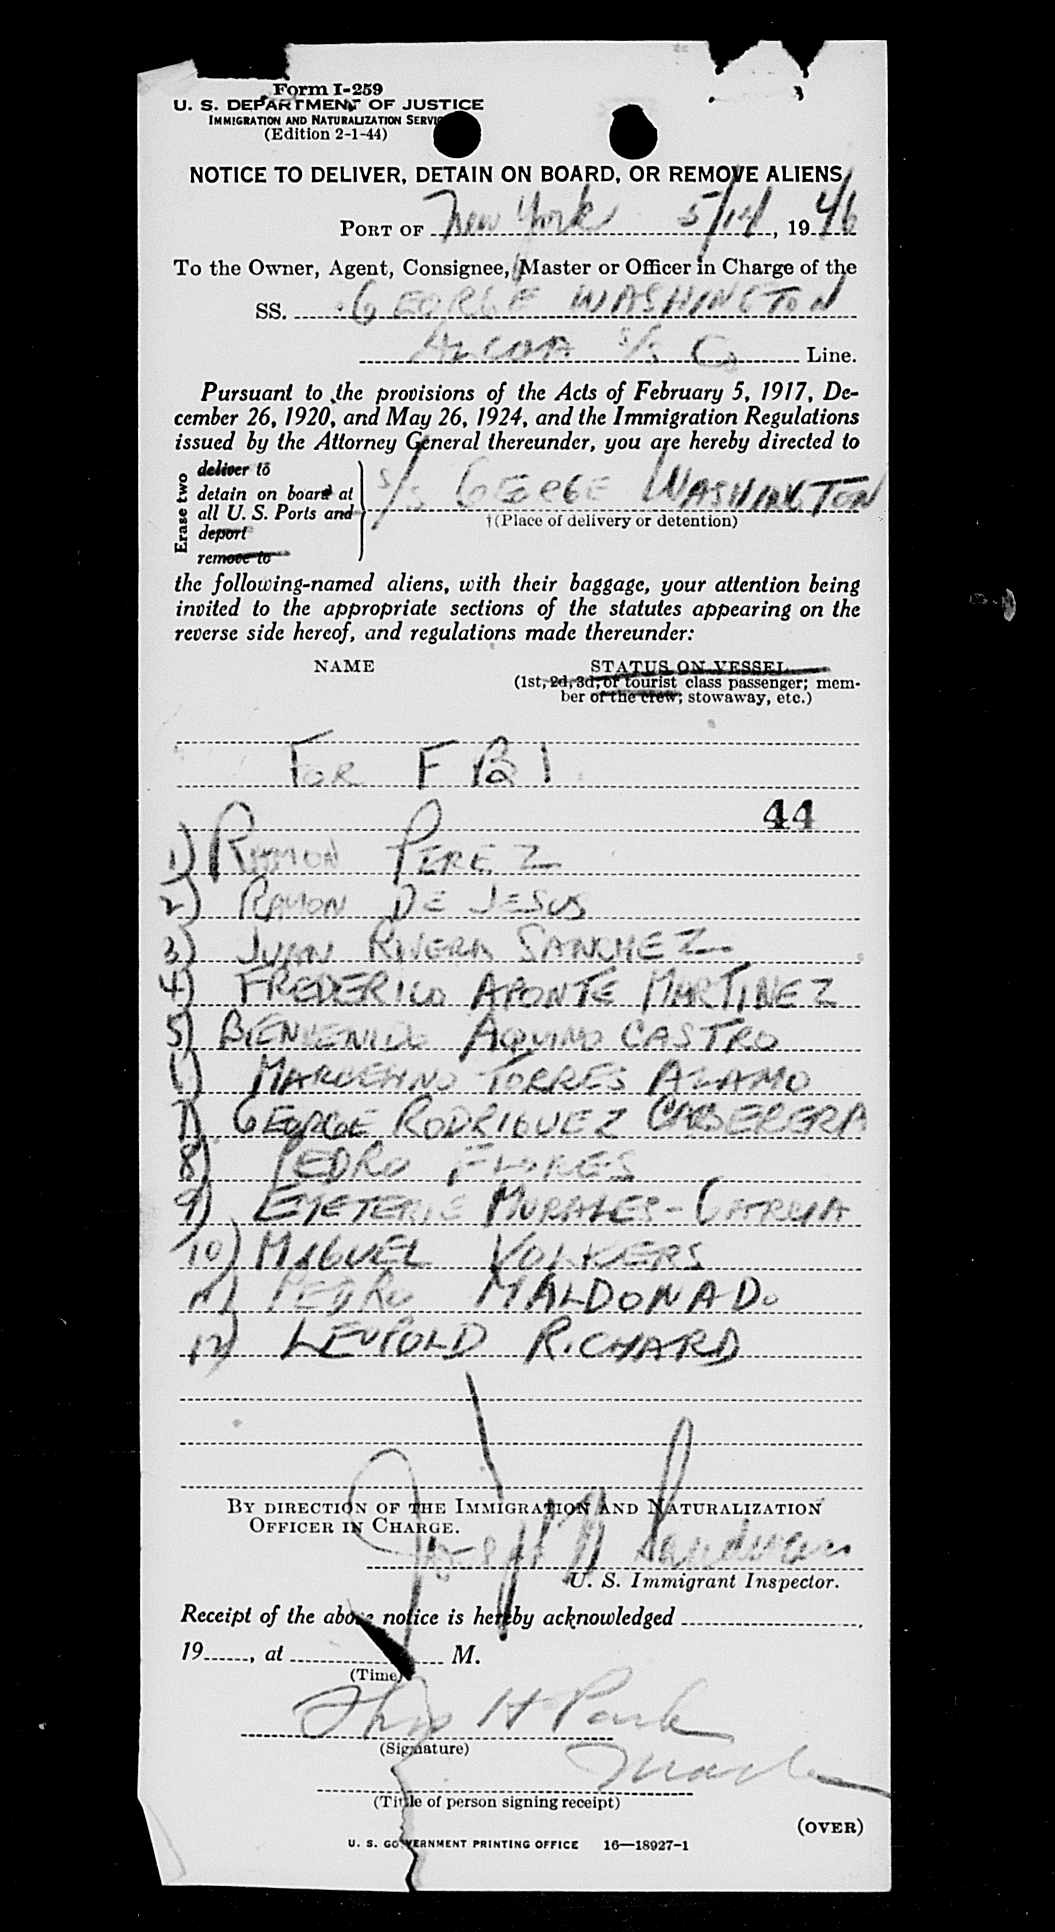 Form I-259
U. S. DEPARTMENT OF JUSTICE
IMMIGRATION AND NATURALIZATION SERVICE
(Edition 2-1-44)
NOTICE TO DELIVER, DETAIN ON BOARD, OR REMOVE ALIENS
PORT OF New York 5/14/, 1946
To the Owner, Agent, Consignee, Master or Officer in Charge of the
SS. GEORGE WASHINGTON
ALCOA S/S Co Line.
Pursuant to the provisions of the Acts of February 5, 1917, De-
cember 26, 1920, and May 26, 1924, and the Immigration Regulations
issued by the Attorney General thereunder, you are hereby directed to
Erase two
deliver to
detain on board at
all U. S. Ports and
deport
remove to
S/S GEORGE WASHINGTON
†(Place of delivery or detention)
the following-named aliens, with their baggage, your attention being
invited to the appropriate sections of the statutes appearing on the
reverse side hereof, and regulations made thereunder:
NAME STATUS ON VESSEL
(1st, 2d, 3d, or tourist class passenger; mem-
ber of the crew; stowaway, etc.)
FOR FBI
44
1) RAMON PEREZ
2) RAMON DE JESUS
3) JUAN RIVERA SANCHEZ
4) FREDERICO APONTE MARTINEZ
5) BIENVENIDO AQUINO CASTRO
6) MARCELINO TORRES ALAMO
7) GEORGE RODRIGUEZ CABERERA
8) PEDRO FLORES
9) EMETERIE MORALES-GARCIA
10) MIGUEL VOLKERS
11) PEDRO MALDONADO
12) LEOPOLD RICHARD
BY DIRECTION OF THE IMMIGRATION AND NATURALIZATION
OFFICER IN CHARGE.
Joseph
U. S. Immigrant Inspector.
Receipt of the above notice is hereby acknowledged
19 , at M.
(Time)
Thos H Park
(Signature)
Master
(Title of person signing receipt)
(OVER)
U. S. GOVERNMENT PRINTING OFFICE 16—18927-1